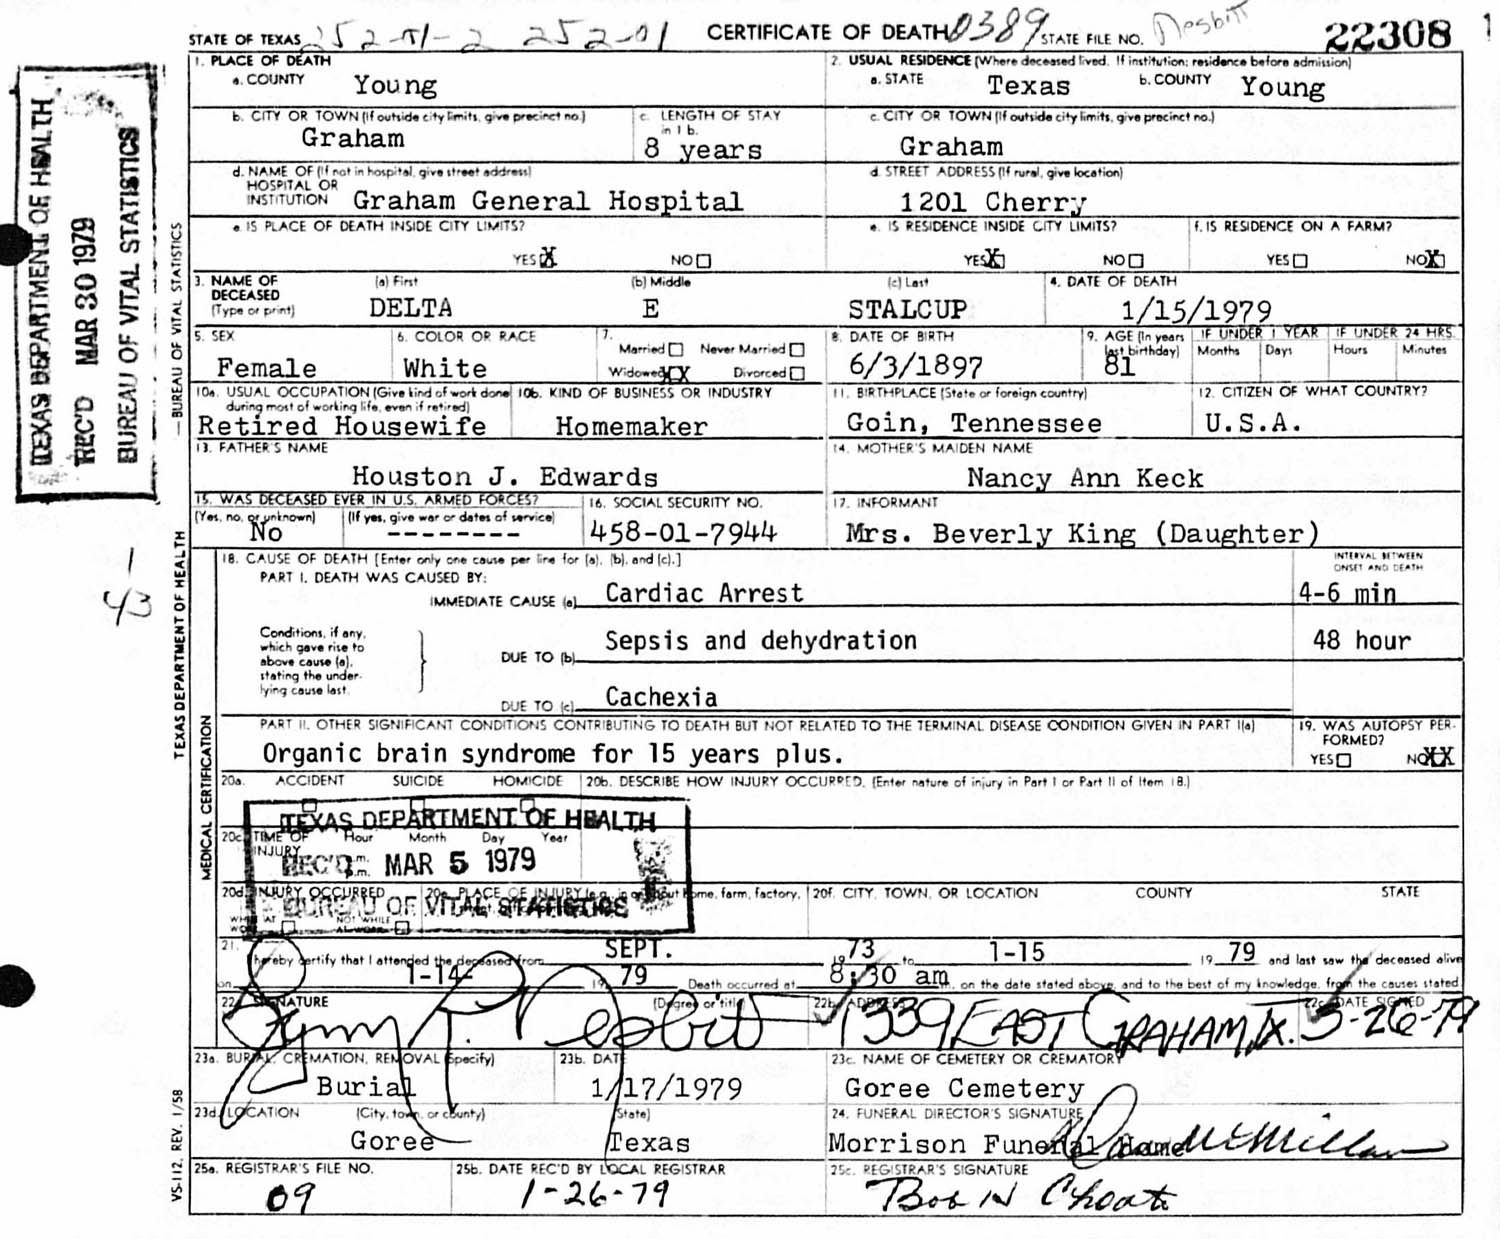 STATE OF TEXAS 252-01-2 252-01 CERTIFICATE OF DEATH 0389 STATE FILE NO. Nesbitt 22308 1
TEXAS DEPARTMENT OF HEALTH
REC'D MAR 30 1979
BUREAU OF VITAL STATISTICS
1. PLACE OF DEATH
a. COUNTY Young
2. USUAL RESIDENCE (Where deceased lived. If institution: residence before admission)
a. STATE Texas b. COUNTY Young
b. CITY OR TOWN (If outside city limits, give precinct no.)
Graham
c. LENGTH OF STAY
in 1 b.
8 years
c. CITY OR TOWN (If outside city limits, give precinct no.)
Graham
d. NAME OF (If not in hospital, give street address)
HOSPITAL OR
INSTITUTION Graham General Hospital
d. STREET ADDRESS (If rural, give location)
1201 Cherry
e. IS PLACE OF DEATH INSIDE CITY LIMITS?
YES X NO
e. IS RESIDENCE INSIDE CITY LIMITS?
YES X NO
f. IS RESIDENCE ON A FARM?
YES NO X
3. NAME OF
DECEASED
(Type or print)
(a) First
DELTA
(b) Middle
E
(c) Last
STALCUP
4. DATE OF DEATH
1/15/1979
5. SEX
Female
6. COLOR OR RACE
White
7.
Married Never Married
Widowed XX Divorced
8. DATE OF BIRTH
6/3/1897
9. AGE (In years
last birthday)
81
IF UNDER 1 YEAR
Months Days
IF UNDER 24 HRS.
Hours Minutes
10a. USUAL OCCUPATION (Give kind of work done
during most of working life, even if retired)
Retired Housewife
10b. KIND OF BUSINESS OR INDUSTRY
Homemaker
11. BIRTHPLACE (State or foreign country)
Goin, Tennessee
12. CITIZEN OF WHAT COUNTRY?
U.S.A.
13. FATHER'S NAME
Houston J. Edwards
14. MOTHER'S MAIDEN NAME
Nancy Ann Keck
15. WAS DECEASED EVER IN U.S. ARMED FORCES?
(Yes, no, or unknown) (If yes, give war or dates of service)
No --------
16. SOCIAL SECURITY NO.
458-01-7944
17. INFORMANT
Mrs. Beverly King (Daughter)
1
43
18. CAUSE OF DEATH [Enter only one cause per line for (a), (b), and (c).]
PART I. DEATH WAS CAUSED BY:
INTERVAL BETWEEN
ONSET AND DEATH
IMMEDIATE CAUSE (a) Cardiac Arrest 4-6 min
Conditions, if any,
which gave rise to
above cause (a),
stating the under-
lying cause last.
DUE TO (b) Sepsis and dehydration 48 hour
DUE TO (c) Cachexia
PART II. OTHER SIGNIFICANT CONDITIONS CONTRIBUTING TO DEATH BUT NOT RELATED TO THE TERMINAL DISEASE CONDITION GIVEN IN PART I(a)
Organic brain syndrome for 15 years plus.
19. WAS AUTOPSY PER-
FORMED?
YES NO XX
20a. ACCIDENT SUICIDE HOMICIDE
20b. DESCRIBE HOW INJURY OCCURRED. (Enter nature of injury in Part I or Part II of Item 18.)
TEXAS DEPARTMENT OF HEALTH
REC'D MAR 5 1979
BUREAU OF VITAL STATISTICS
20c. TIME OF Hour Month Day Year
INJURY a.m.
p.m.
20d. INJURY OCCURRED
WHILE AT WORK NOT WHILE AT WORK
20e. PLACE OF INJURY (e.g., in or about home, farm, factory,
20f. CITY, TOWN, OR LOCATION COUNTY STATE
21. I hereby certify that I attended the deceased from SEPT. 19 73 to 1-15 19 79 and last saw the deceased alive
on 1-14- 19 79 Death occurred at 8:30 am. on the date stated above, and to the best of my knowledge, from the causes stated.
22a. SIGNATURE (Degree or title)
Nesbitt
22b. ADDRESS
1339 EAST GRAHAM, TX.
22c. DATE SIGNED
3-26-79
23a. BURIAL, CREMATION, REMOVAL (Specify)
Burial
23b. DATE
1/17/1979
23c. NAME OF CEMETERY OR CREMATORY
Goree Cemetery
23d. LOCATION (City, town, or county) (State)
Goree Texas
24. FUNERAL DIRECTOR'S SIGNATURE
Morrison Funeral Home McMillan
25a. REGISTRAR'S FILE NO.
09
25b. DATE REC'D BY LOCAL REGISTRAR
1-26-79
25c. REGISTRAR'S SIGNATURE
Bob N Choate
TEXAS DEPARTMENT OF HEALTH — BUREAU OF VITAL STATISTICS
MEDICAL CERTIFICATION
VS-112. REV. 1/58